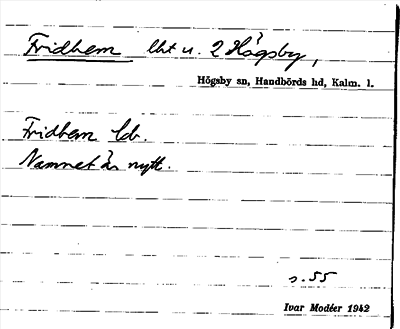 Fridhem lht u. 2 Högsby,
Högsby sn, Handbörds hd, Kalm. l.
Fridhem ldr.
Namnet är nytt.
s. 55
Ivar Modéer 1942